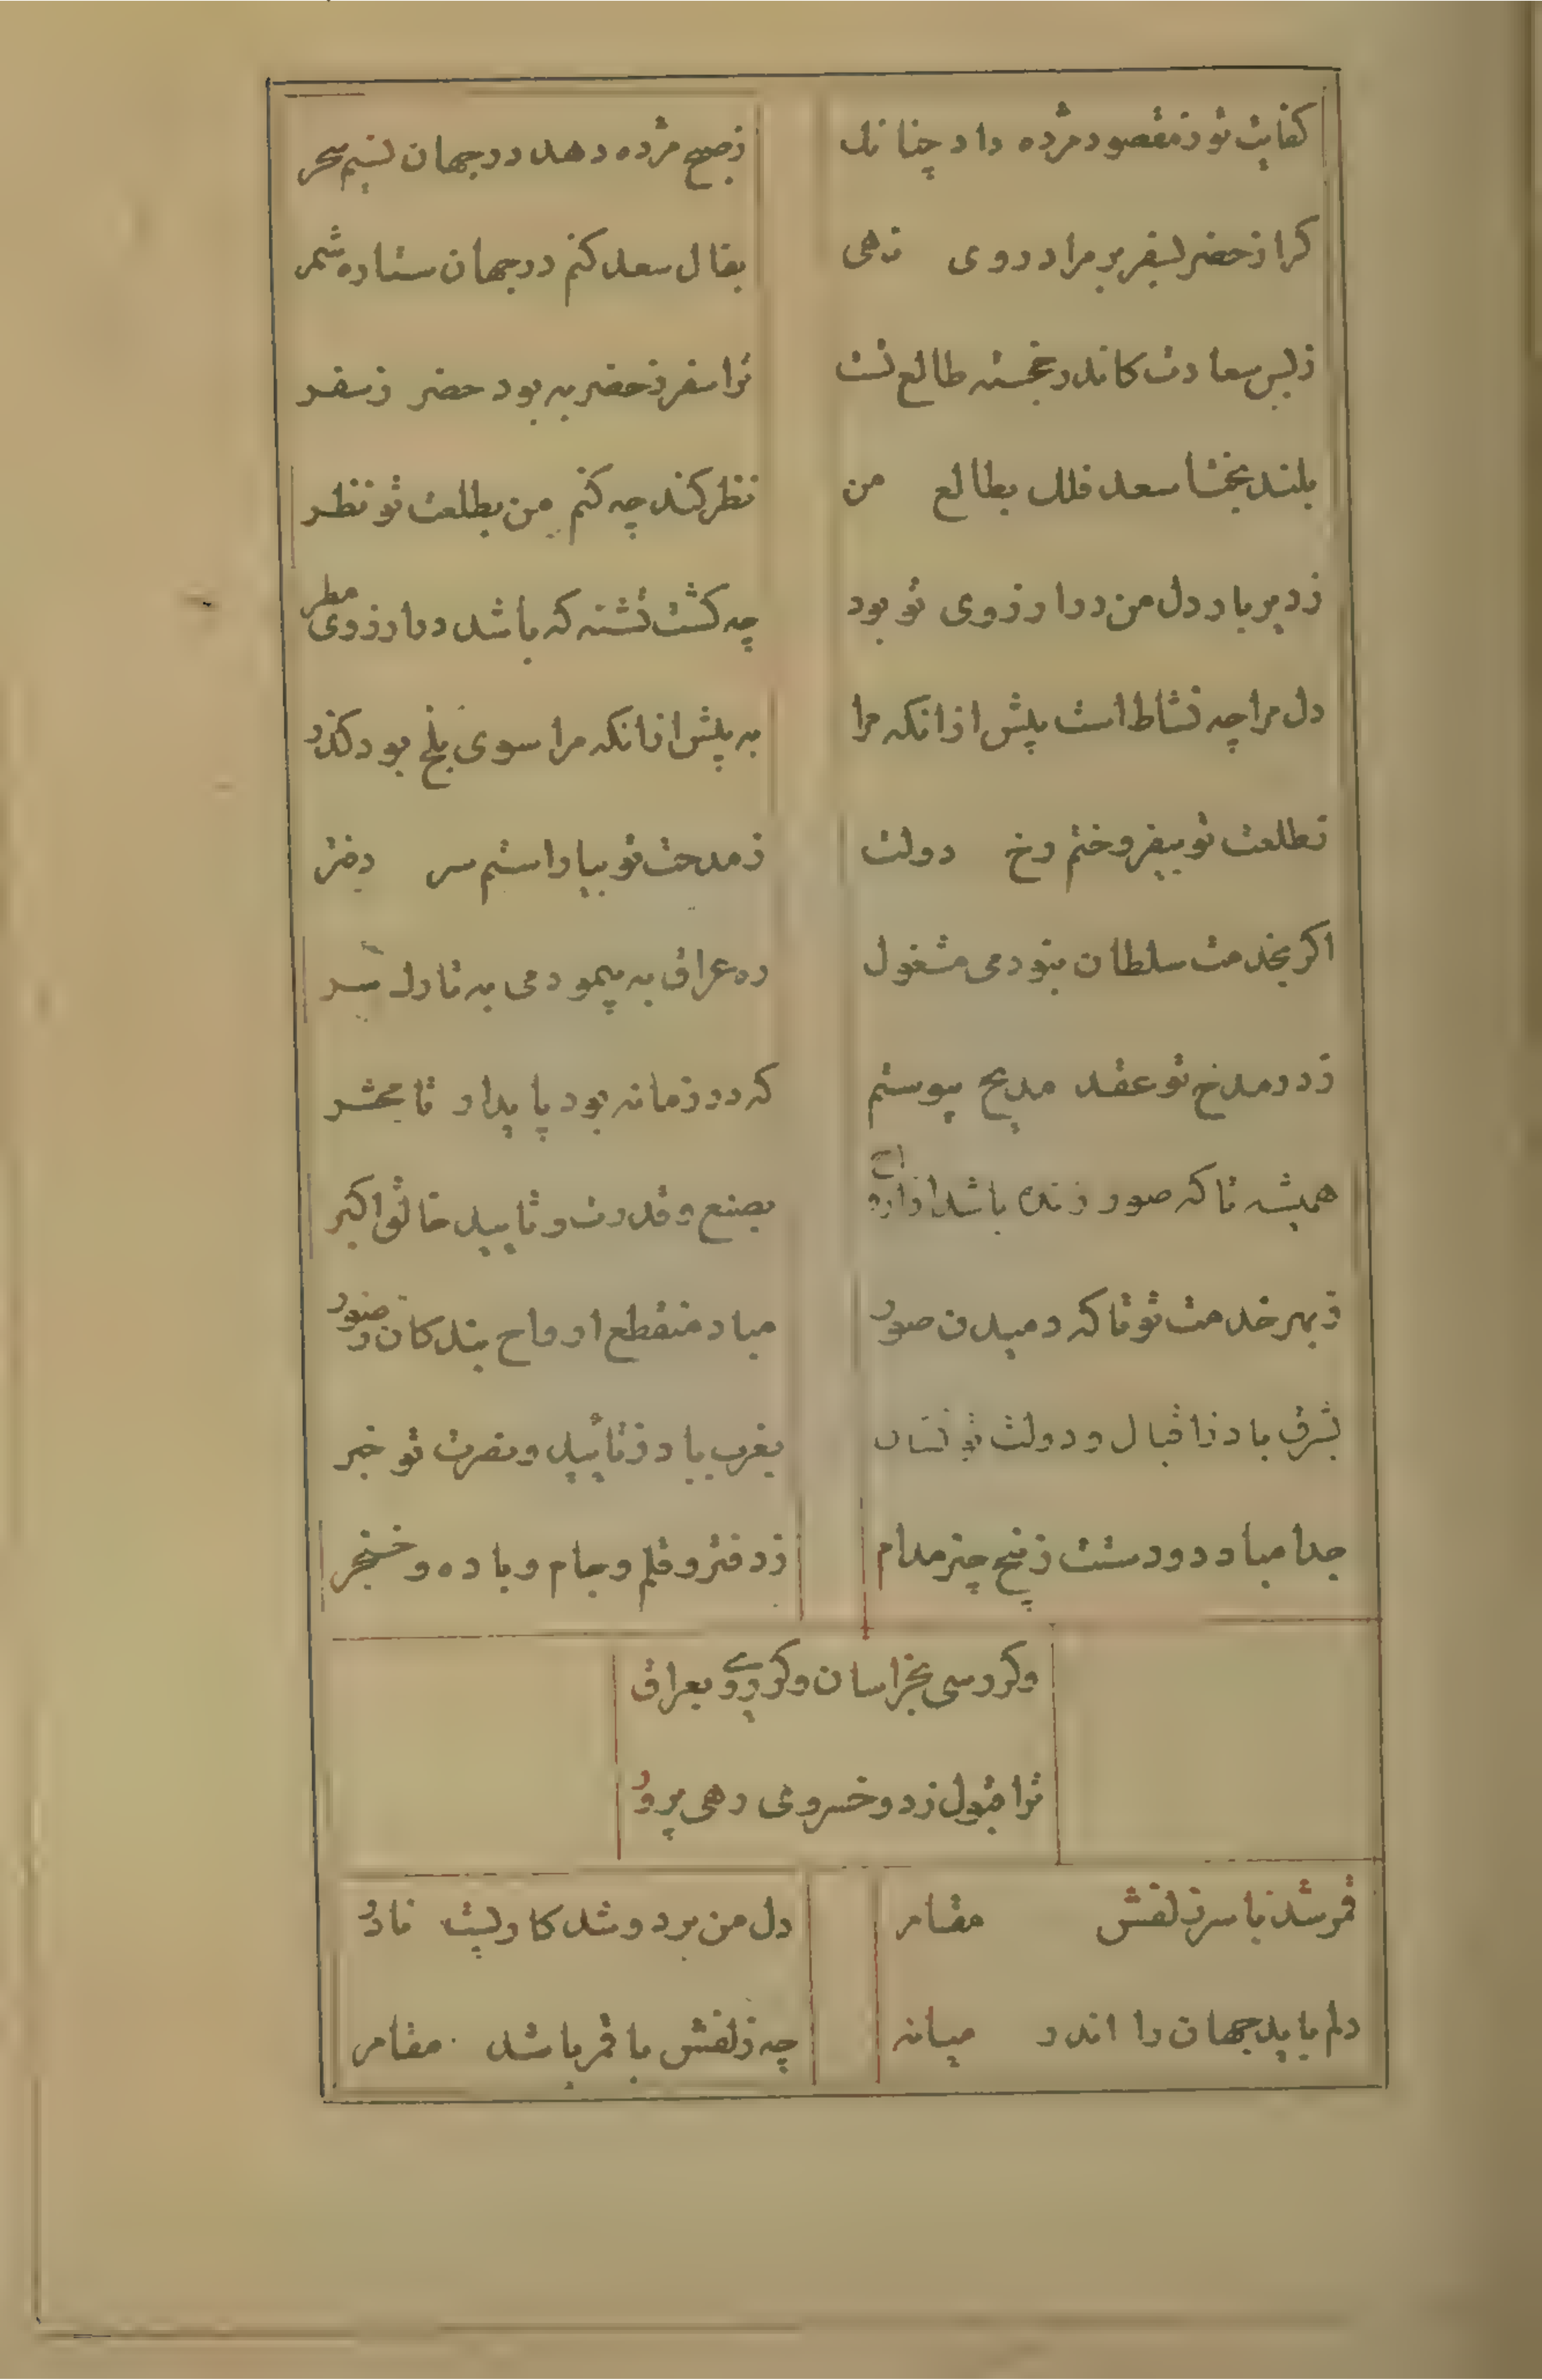 کفایت تو ز مقصود مژده داد چنانک
ز صبح مژده دهد در جهان نسیم سحر
کرا ز حضر بسفر بر مراد روی نهی
بفال سعد کنم در جهان ستاره شمر
ز بس سعادت کاندر خجسته طالع تست
ترا سفر ز حضر به بود حضر ز سفر
بلند بختا سعد فلک بطالع من
نظر کند چه کنم من بطلعت تو نظر
ز دیر باز دل من در ارزوی تو بود
چه کشت تشنه که باشد در ارزوی مطر
دل مرا چه نشاط است پیش ازانکه مرا
به پیش ازانکه مرا سوی بلخ بود کذر
ز طلعت تو بیفروختم رخ دولت
ز مدحت تو بیاراستم سر دفتر
اکر بخدمت سلطان نبودمی مشغول
ره عراق به پیمودمی به تارک سر
ز در مدح تو عقد مدیح پیوستم
که در زمانه بود پایدار تا محشر
همیشه تا که صور زنده باشد از ارواح
بصنع و قدرت و تایید خالق اکبر
ز بهر خدمت تو تا که دمیدن صور
مباد منقطع ارواح بندکان ز صور
بشرق باد ز اقبال و دولت تو نشان
بغرب باد ز تایید و نصرت تو خبر
جدا مباد دو دستت ز پنج چیز مدام
ز دفتر و قلم و جام و باده و خنجر
وکر رسی بخراسان وکر روی بعراق
ترا قبول ز دو خسروی رهی پرور
قمر شد با سر زلفش مقامر
دل من برد و شد کارلیت نادر
دلم باید جهان را اندر میانه
چه زلفش با قمر باشد مقامر